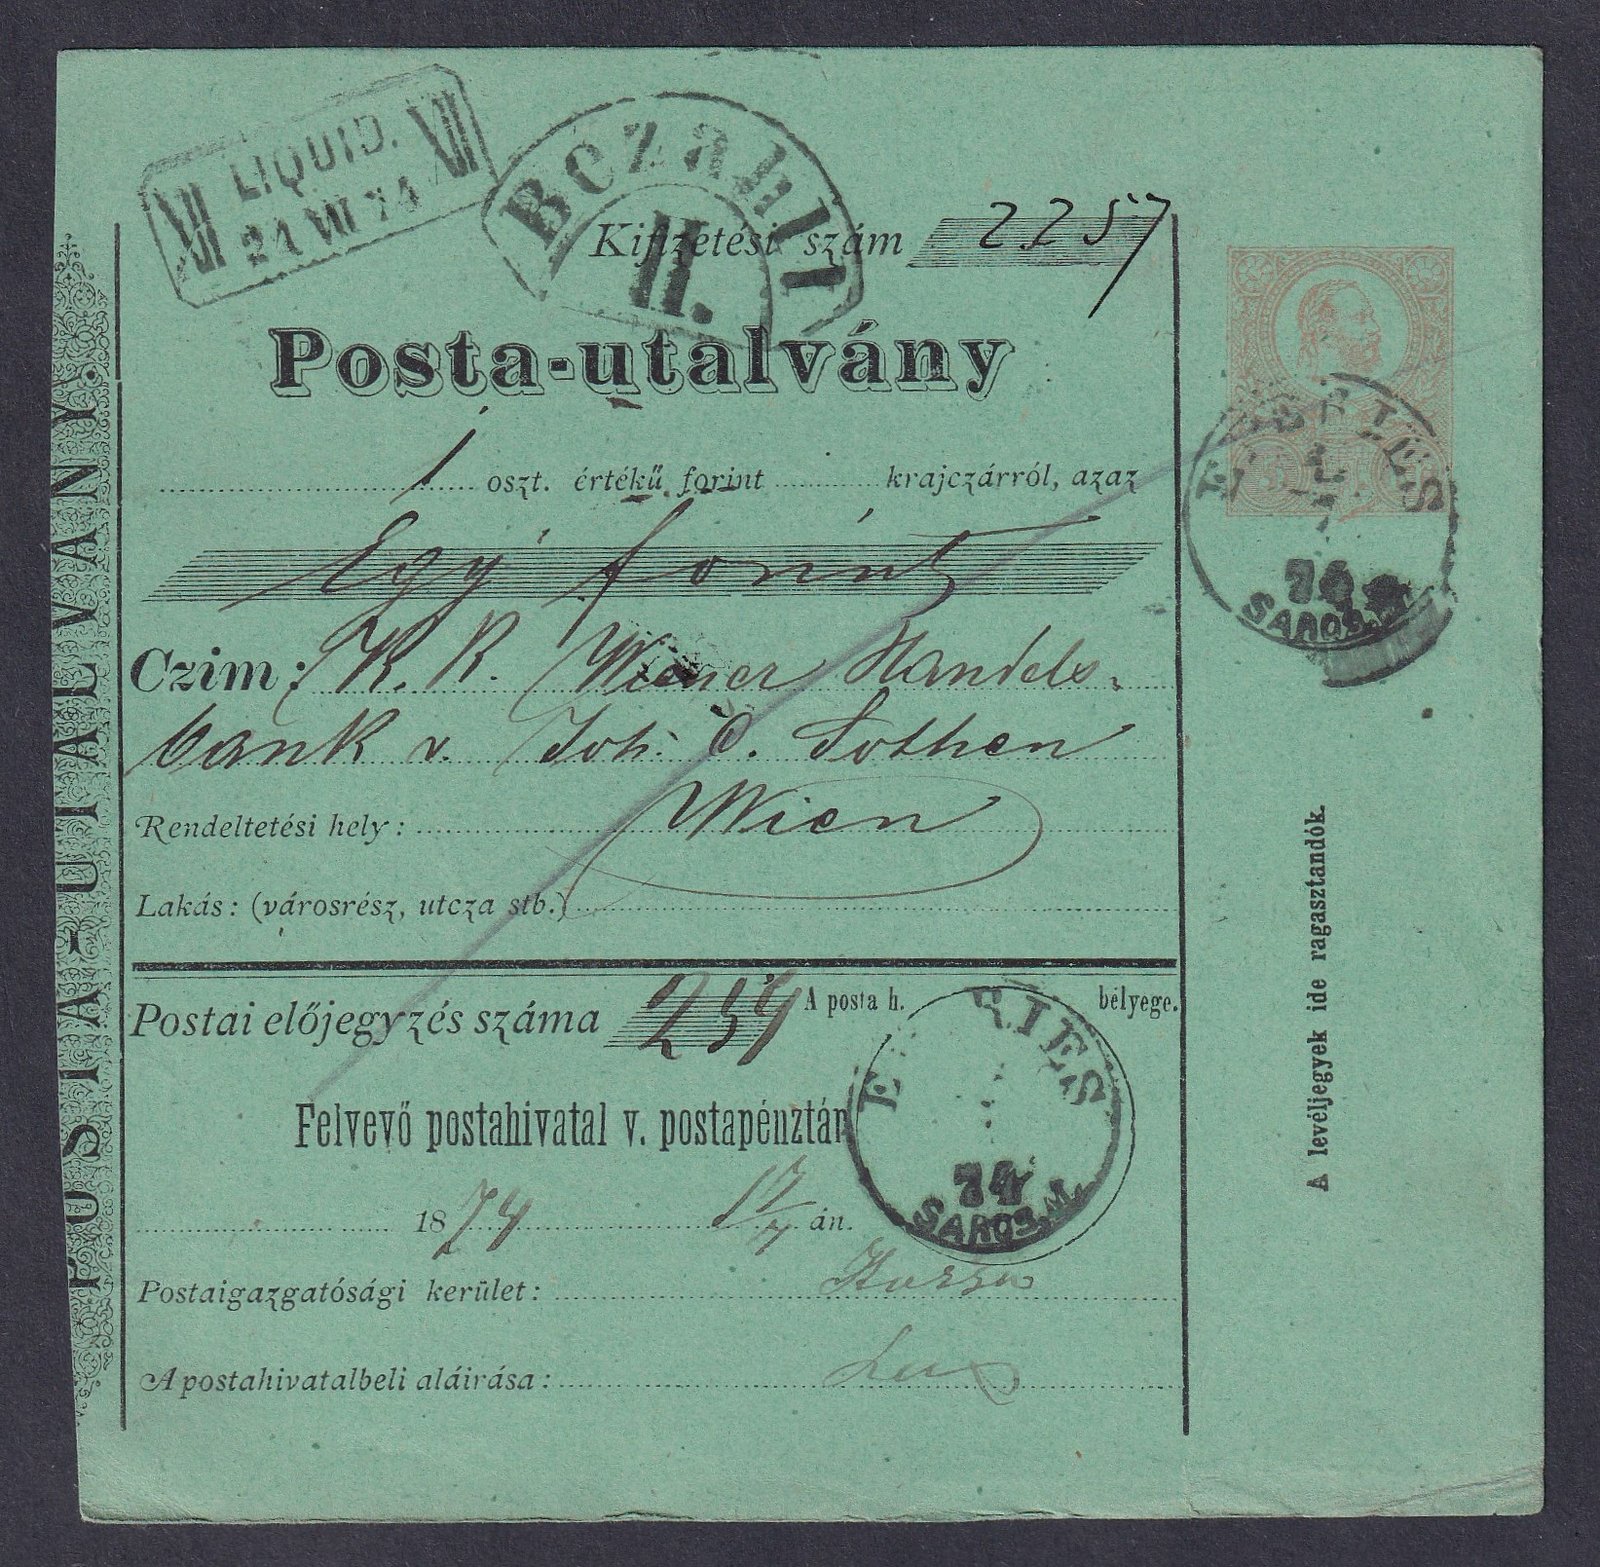 XII LIQUID. XII
24 VII 74
Bezahlt
II.
Kifizetési szám 2257
Posta-utalvány
1 oszt. értékű forint krajczárról, azaz
Egy forint
Czim: K. K. Wiener Handels-
bank v. Joh. C. Sothen
Rendeltetési hely: Wien
Lakás: (városrész, utcza stb.)
Postai előjegyzés száma 254
A posta h. bélyege.
Felvevő postahivatal v. postapénztár
1874 17/7 án.
Postaigazgatósági kerület:
A postahivatalbeli aláirása:
POSTA-UTALVÁNY.
EPERIES
74
SAROS.M.
E RIES
74
SAROS.M.
5
A levéljegyek ide ragasztandók.